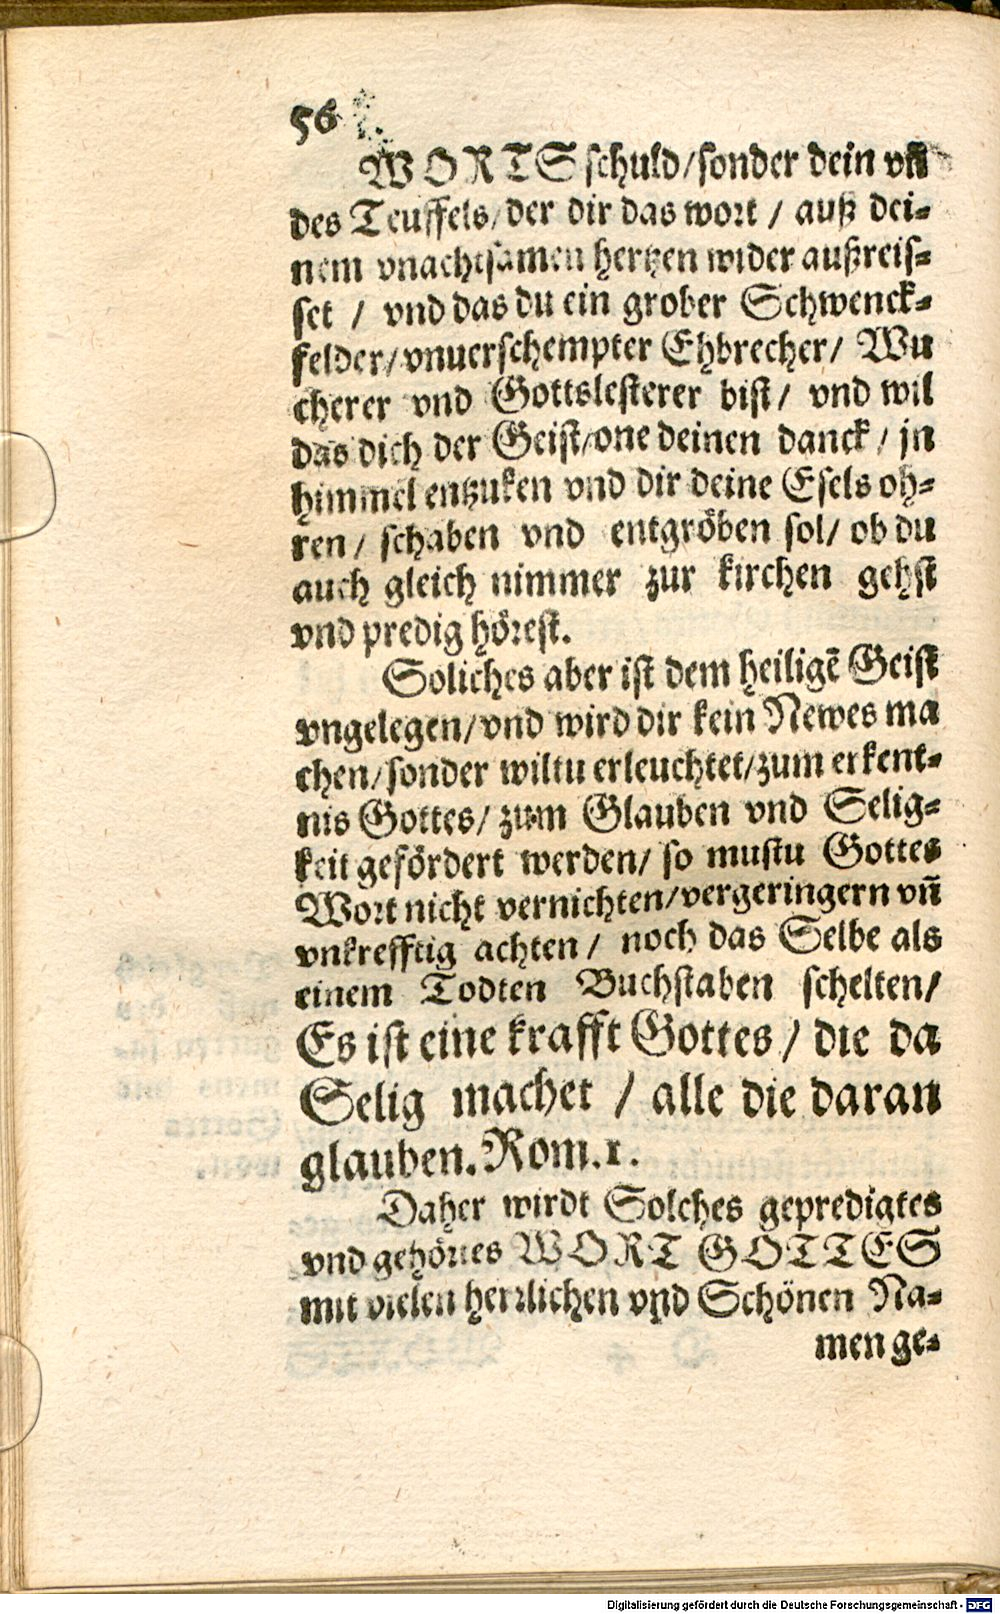 56
WORTS schuld/sonder dein vñ
des Teuffels/der dir das wort / auß dei-
nem vnachtsamen hertzen wider außreis-
set / vnd das du ein grober Schwenck-
felder/vnuerschempter Ehbrecher/ Wu
cherer vnd Gottslesterer bist/ vnd wil
das dich der Geist/one deinen danck / jn
himmel entzuken vnd dir deine Esels oh-
ren / schaben vnd entgröben sol/ ob du
auch gleich nimmer zur kirchen gehst
vnd predig hörest.
Soliches aber ist dem heiligẽ Geist
vngelegen/vnd wird dir kein Newes ma
chen/sonder wiltu erleuchtet/zum erkent-
nis Gottes/ zum Glauben vnd Selig-
keit gefördert werden/ so mustu Gottes
Wort nicht vernichten/vergeringern vñ
vnkrefftig achten / noch das Selbe als
einem Todten Buchstaben schelten/
Es ist eine krafft Gottes / die da
Selig machet / alle die daran
glauben. Rom. 1.
Daher wirdt Solches gepredigtes
vnd gehörtes WORT GOTTES
mit vielen herrlichen vnd Schönen Na-
men ge-
Digitalisierung gefördert durch die Deutsche Forschungsgemeinschaft - DFG